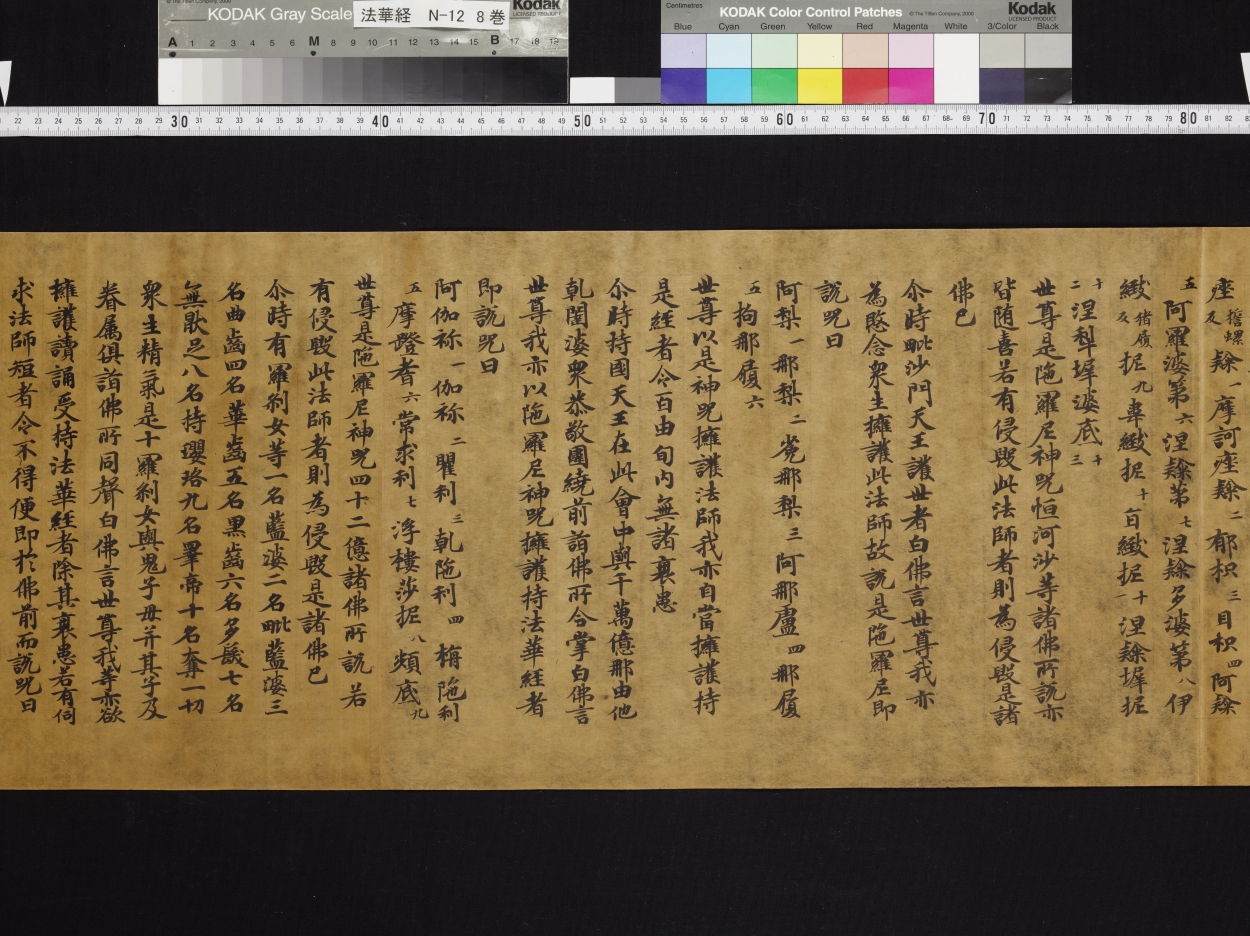 KODAK Gray Scale
法華経 N-12 8巻
Kodak
LICENSED PRODUCT
A 1 2 3 4 5 6 M 8 9 10 11 12 13 14 15 B 17 18 19
Centimetres
KODAK Color Control Patches
© The Tiffen Company, 2000
Kodak
LICENSED PRODUCT
Blue Cyan Green Yellow Red Magenta White 3/Color Black
22 23 24 25 26 27 28 29 30 31 32 33 34 35 36 37 38 39 40 41 42 43 44 45 46 47 48 49 50 51 52 53 54 55 56 57 58 59 60 61 62 63 64 65 66 67 68 69 70 71 72 73 74 75 76 77 78 79 80 81 82
痤誓螺反隸一摩訶痤隸二郁枳三目枳四阿隸
五阿羅婆第六涅隸第七涅隸多婆第八伊
緻猪履反抳九韋緻抳十旨緻抳十一涅隸墀抳
十二涅犁墀婆底十三
世尊是陁羅尼神呪恒河沙等諸佛所說亦
皆随喜若有侵毀此法師者則為侵毀是諸
佛已
尒時毗沙門天王護世者白佛言世尊我亦
為愍念衆生擁護此法師故說是陁羅尼即
說呪曰
阿梨一那梨二㝹那梨三阿那盧四那履
五拘那履六
世尊以是神呪擁護法師我亦自當擁護持
是經者令百由旬內無諸衰患
尒時持國天王在此會中與千萬億那由他
乹闥婆衆恭敬圍繞前詣佛所合掌白佛言
世尊我亦以陁羅尼神呪擁護持法華經者
即說呪曰
阿伽祢一伽祢二瞿利三乹陁利四栴陁利
五摩蹬耆六常求利七浮樓莎抳八頞底九
世尊是陁羅尼神呪四十二億諸佛所說若
有侵毀此法師者則為侵毀是諸佛已
尒時有羅刹女等一名藍婆二名毗藍婆三
名曲齒四名華齒五名黒齒六名多髮七名
無猒足八名持瓔珞九名睪帝十名奪一切
衆生精氣是十羅刹女與鬼子母并其子及
眷属俱詣佛所同聲白佛言世尊我等亦欲
擁護讀誦受持法華經者除其衰患若有伺
求法師短者令不得便即於佛前而說呪曰